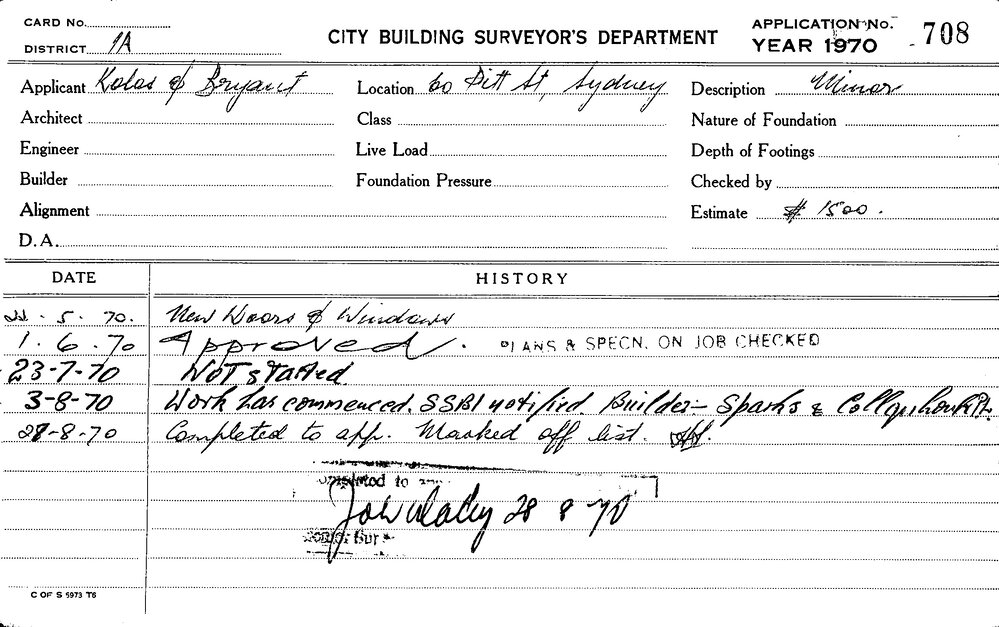 CARD No.
DISTRICT 1A
CITY BUILDING SURVEYOR'S DEPARTMENT
APPLICATION No. 708
YEAR 1970
Applicant Kolos & Bryant
Location 60 Pitt St, Sydney
Description Minor
Architect
Class
Nature of Foundation
Engineer
Live Load
Depth of Footings
Builder
Foundation Pressure
Checked by
Alignment
Estimate $ 1500.
D.A.
DATE HISTORY
5. 70. New Doors & Windows
1. 6. 70 Approved. PLANS & SPECN. ON JOB CHECKED
23-7-70 Not started
3-8-70 Work has commenced. SSBI notified. Builder- Sparks &
28-8-70 Completed to app. Marked off list.
to
28 8 70
C OF S 5973 T6